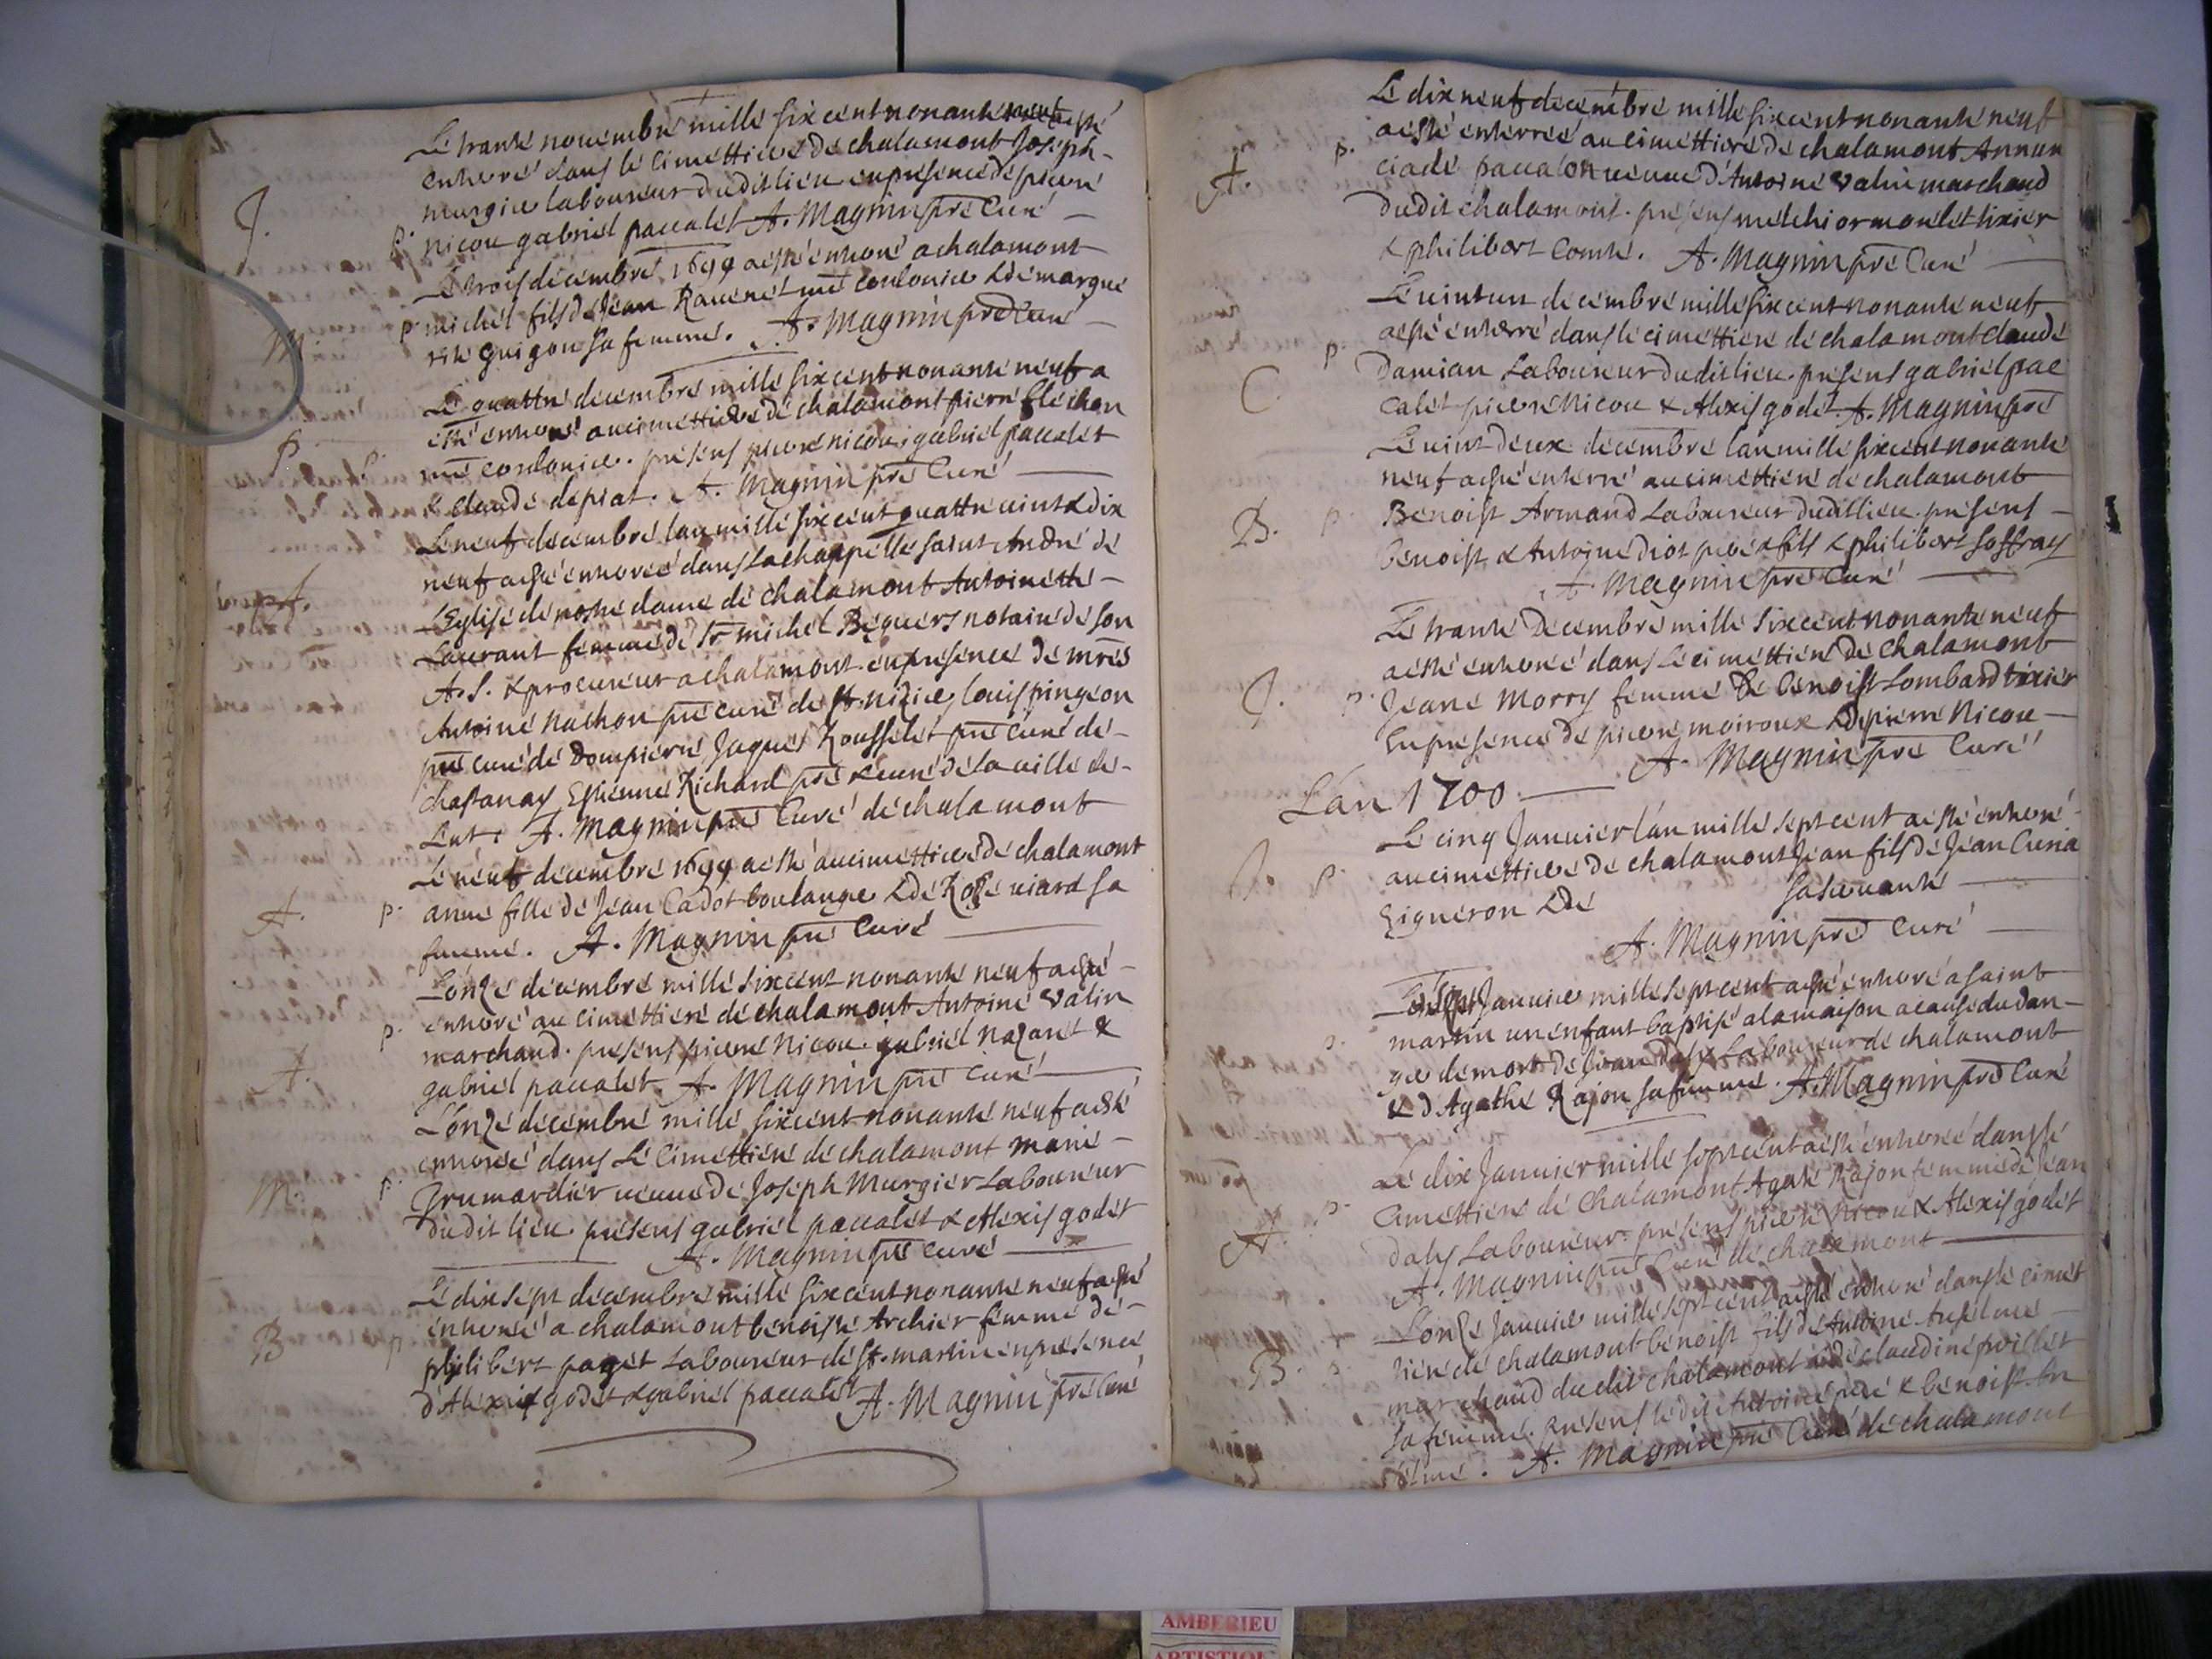 Le trante novembre mille six cent nonante neuf a esté
enterré dans le cimettiere de chalamont Joseph
murgier laboureur dudit lieu en presence de pierre
J. p. nicou gabriel paccalet A. Magnin pre Curé
Le trois decembre 1699 a esté enterré a chalamont
M p michel fils de Jean Ravenel me cordonier & de margue
rite guigon sa femme. A. Magnin pre Curé
Le quattre decembre mille six cent nonante neuf a
esté enterré au cimettiere de chalamont pierre
P. me cordonier. presens pierre nicou, gabriel paccalet
& claude deprat. A. Magnin pre Curé
Le neuf decembre l'an mille six cent quattre vint & dix
neuf a esté enterrée dans la chappelle saint André de
A. l'Eglise de nostre dame de chalamont Antoinette
Laurant femme de Sr michel Beguers notaire de son
A. S. & procureur a chalamont en presence de mres
Antoine nachon pre curé de St. nizier, louis pingeon
pre curé de Dompierre Jaques Rousselet pre curé de
chastanay Estienne Richard pre & curé de la ville de
Lent. A. Magnin pre Curé de chalamont
Le neuf decembre 1699 a esté au cimettiere de chalamont
A. p. anne fille de Jean Cadot boulanger & de Rose viard sa
femme. A. Magnin pre Curé
L'onze decembre mille six cent nonante neuf a esté
p. enterré au cimettiere de chalamont Antoine Valin
marchand. presens pierre Nicou. gabriel nazaret &
A. gabriel paccalet. A. Magnin pre Curé
L'onze decembre mille six cent nonante neuf a esté
enterrée dans Le Cimettiere de chalamont marie
M. p. Grumardier veuve de Joseph Murgier Laboureur
dudit lieu presens gabriel paccalet & Alexis godet
A. Magnin pre curé
Le dix sept decembre mille six cent nonante neuf a esté
enterrée a chalamont benoiste Archier femme de
B p philibert paget Laboureur de St. martin en presence
d'Alexis godet & gabriel paccalet A. Magnin pre Curé
Le dix neuf decembre mille six cent nonante neuf
a esté enterrée au cimettiere de chalamont Annun
A. p. ciade paccalon veuve d'Antoine Valin marchand
dudit chalamont. presens melchior monlet tixier
& philibert Comte. A. Magnin pre Curé
Le vint un decembre mille six cent nonante neuf
a esté enterré dans le cimettiere de chalamont claude
C. p. Damian Laboureur dudit lieu. presens gabriel pac
calet pierre Nicou & Alexis godet. A. Magnin pre
Le vint deux decembre l'an mille six cent nonante
neuf a esté enterré au cimettiere de chalamont
B. p. Benoist Armand Laboureur dudit lieu. presens
benoist & Antoine diot pere & fils & philibert soffray
A. Magnin pre Curé
Le trante Decembre mille six cent nonante neuf
a esté enterré dans Le cimettiere de Chalamont
J. p. Jeane Morry femme de benoist Lombard tixier
En presence de pierre moiroux & de pierre Nicou
A. Magnin pre Curé
L'an 1700
Le cinq Janvier l'an mille sept cent a esté enterré
J. p. au cimettiere de chalamont Jean fils de Jean Curia
Eigueron & de sa servante
A. Magnin pre Curé
Le sept Janvier mille sept cent a esté enterré a saint
p. martin un enfant baptisé a la maison a cause du dan
ger de mort de Jean Dalis Laboureur de chalamont
& d'Agathe Rajon sa femme. A. Magnin pre Curé
Le dix Janvier mille sept cent a esté enterrée dans le
A. p. Cimettiere de Chalamont Agate Rajon femme de Jean
dalis Laboureur. presens pierre Nicou & Alexis godet
A. Magnin pre Curé de chalamont
L'onze Janvier mille sept cent a esté enterré dans le cimet
B. p. tiere de chalamont benoist fils de Antoine Anselme
marchand dudit chalamont & de claudine poillet
sa femme. presens le dit Antoine pere & benoist An
selme. A. Magnin pre Curé de chalamont
AMBERIEU